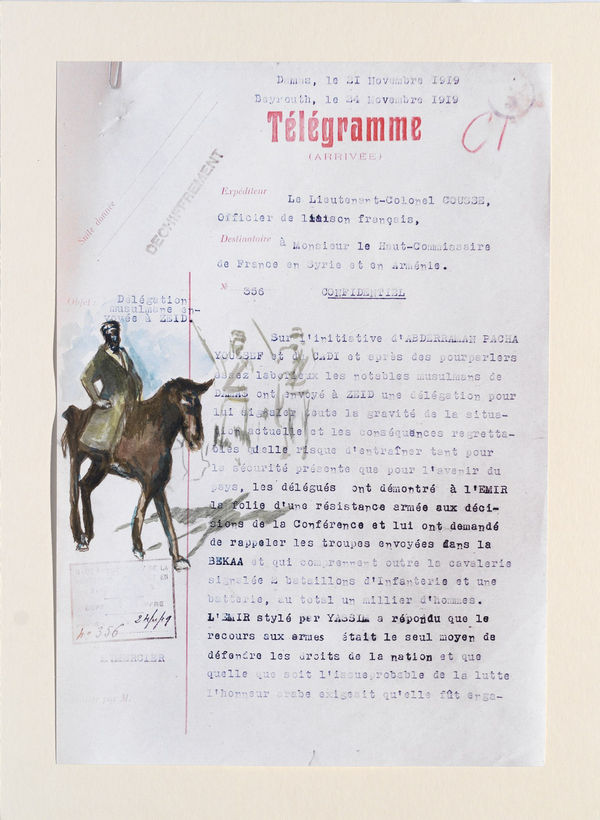 Damas, le 21 Novembre 1919
Beyrouth, le 24 Novembre 1919
Télégramme
(ARRIVÉE)
CT
Suite donnée
DECHIFFREMENT
Expéditeur Le Lieutenant-Colonel COUSSE,
Officier de liaison français,
Destinataire à Monsieur le Haut-Commissaire
de France en Syrie et en Arménie.
N° 356 CONFIDENTIEL
Objet : Délégation
musulmane en-
voyée à ZEID.
Sur l'initiative d'ABDERRAMAN PACHA
YOUSSEF et du CADI et après des pourparlers
assez laborieux les notables musulmans de
DAMAS ont envoyé à ZEID une délégation pour
lui signaler toute la gravité de la situa-
tion actuelle et les conséquences regretta-
bles quelle risque d'entraîner tant pour
la sécurité présente que pour l'avenir du
pays, les délégués ont démontré à l'EMIR
la folie d'une résistance armée aux déci-
sions de la Conférence et lui ont demandé
de rappeler les troupes envoyées dans la
BEKAA et qui comprennent outre la cavalerie
signalée 2 bataillons d'Infanterie et une
batterie, au total un millier d'hommes.
L'EMIR stylé par YASSIM a répondu que le
recours aux armes était le seul moyen de
défendre les droits de la nation et que
quelle que soit l'issueprobable de la lutte
l'honneur arabe exigeait qu'elle fût enga-
DE LA
EN
24/11/19
N° 356
par M.